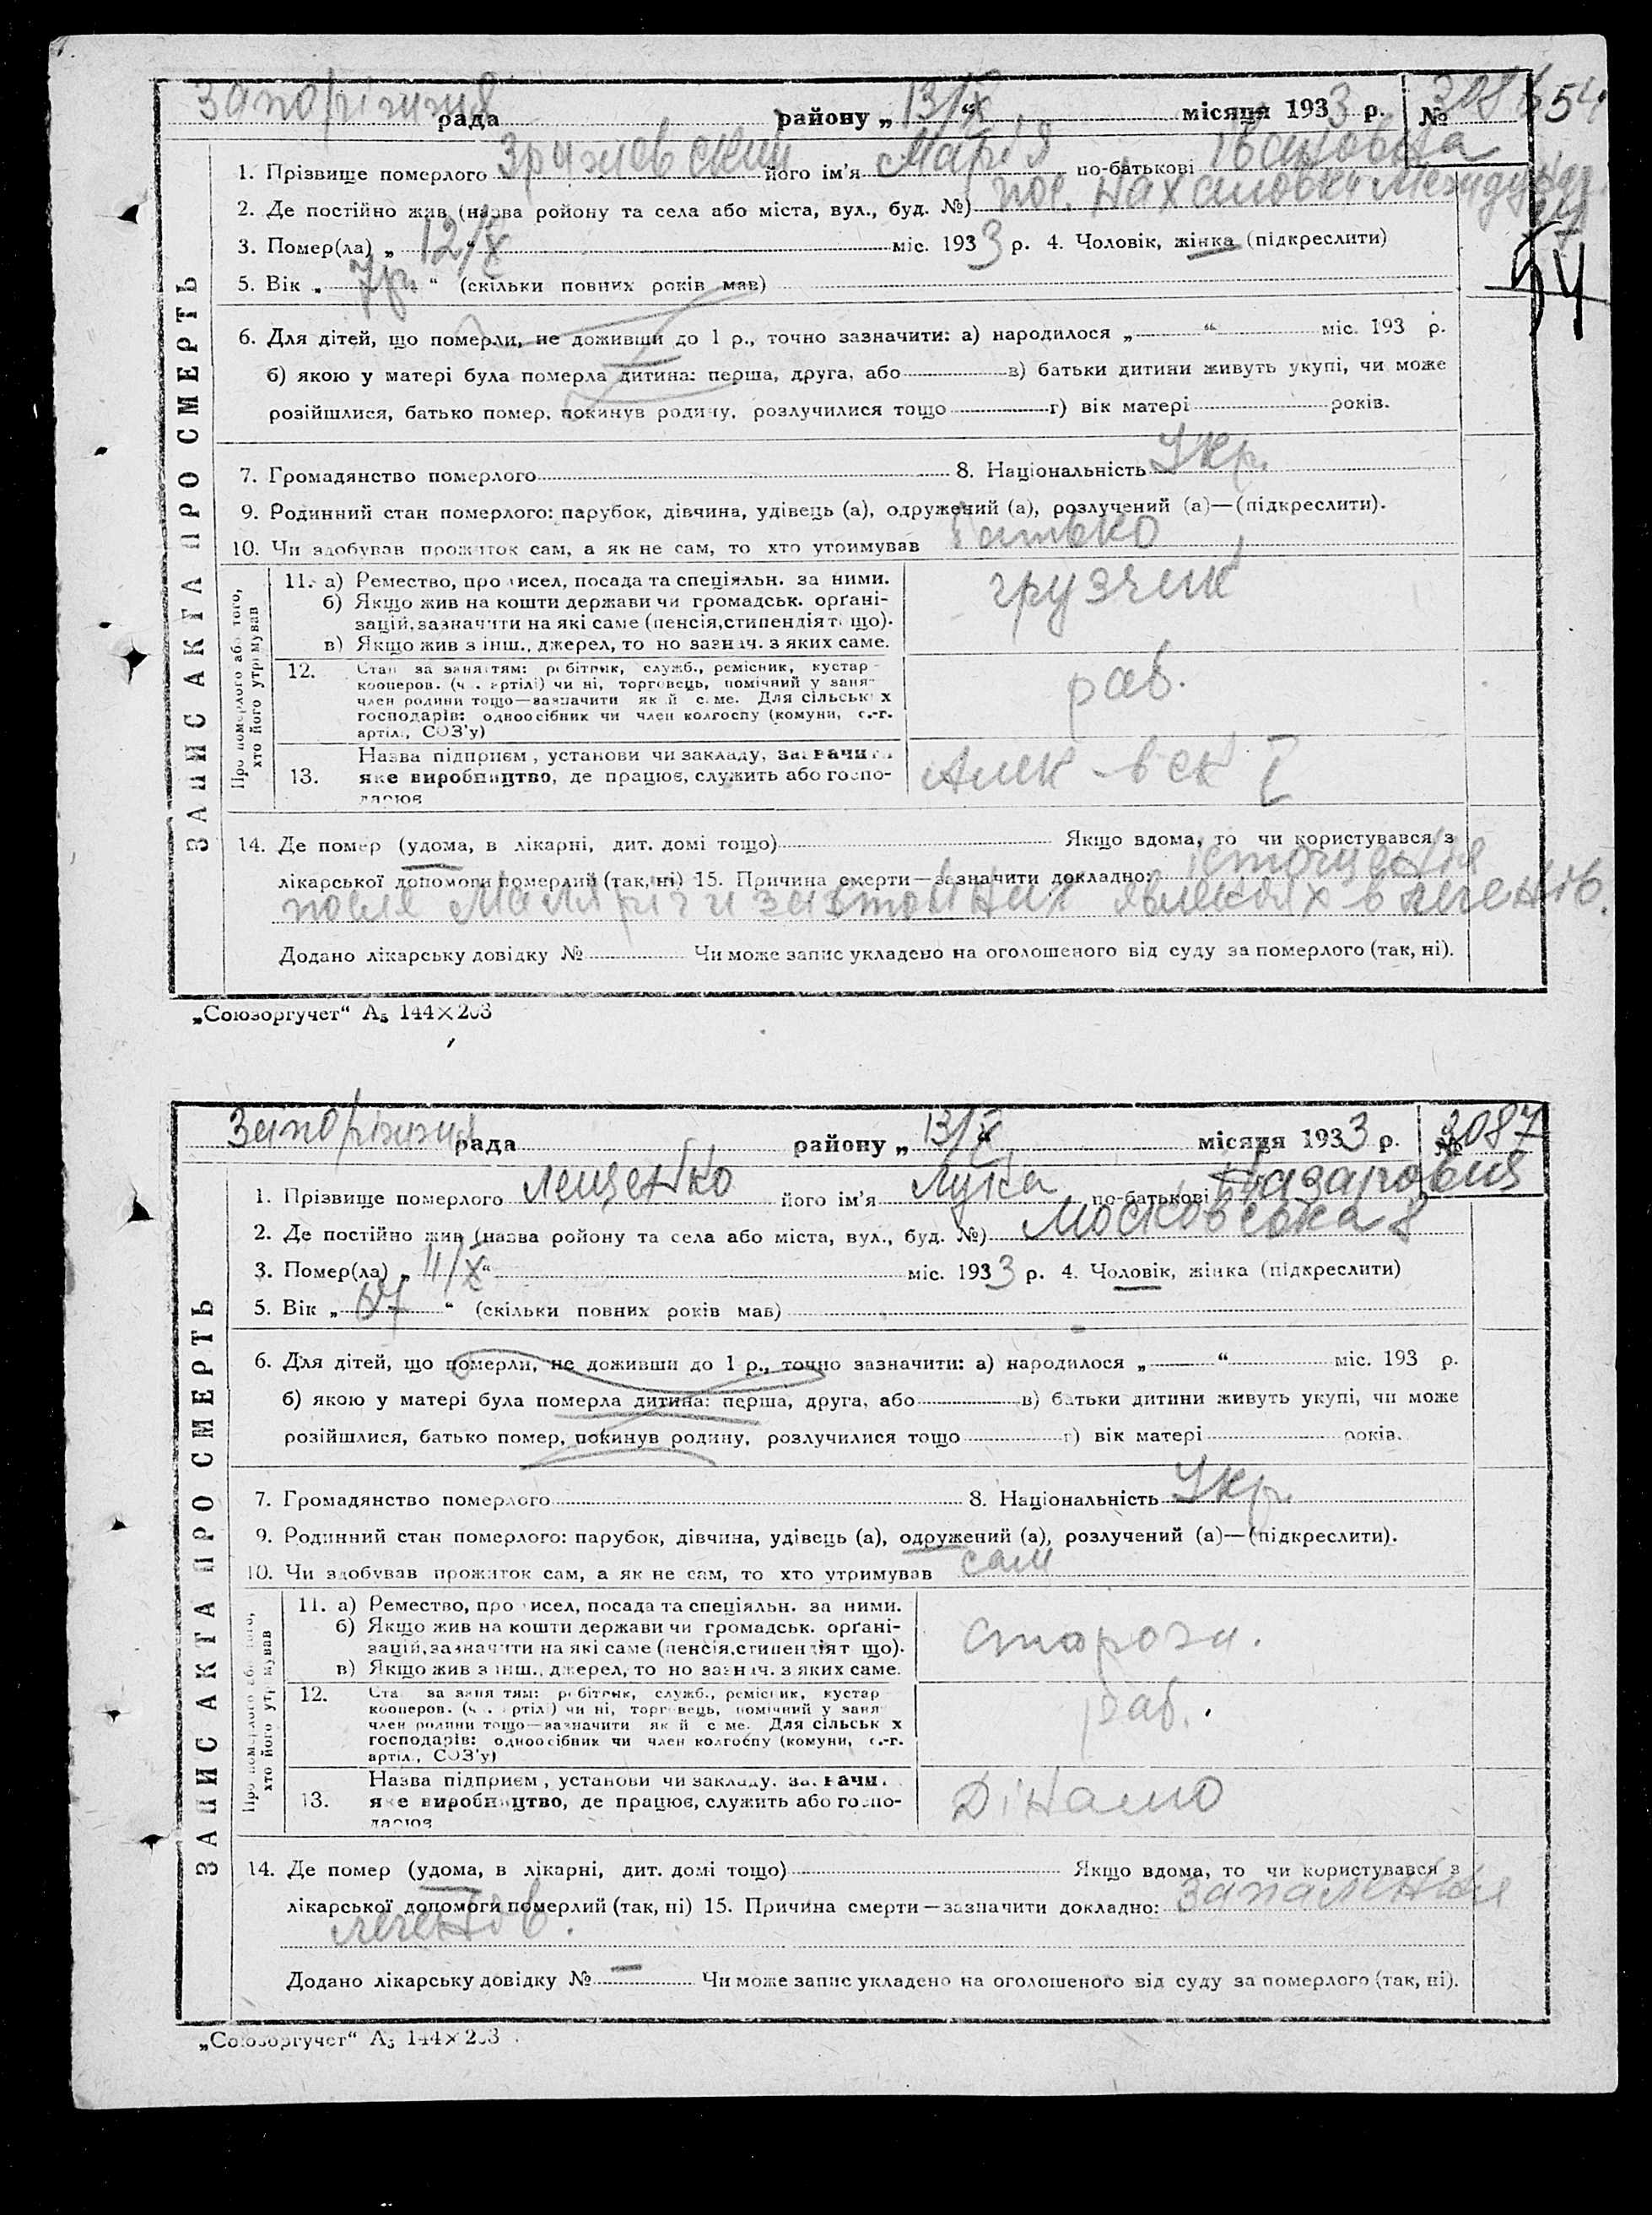 Запоріжжя рада района „ 13/X “ місяця 1933 р. № 3086 54
1. Прізвище померлого його ім'я Марія по-батькові Івановна
2. Де постійно жив (назва ройону та села або міста, вул., буд. №) пос. Нахаловка
3. Помер(ла) „ 12/X “ міс. 1933 р. 4. Чоловік, жінка (підкреслити)
54
5. Вік „ 7 р. “ (скільки повних років мав)
6. Для дітей, що померли, не доживши до 1 р., точно зазначити: а) народилося „ “ міс. 193 р.
б) якою у матері була померла дитина: перша, друга, або в) батьки дитини живуть укупі, чи може
розійшлися, батько помер, покинув родину, розлучилися тощо г) вік матері років.
7. Громадянство померлого 8. Національність Укр.
9. Родинний стан померлого: парубок, дівчина, удівець (а), одружений (а), розлучений (а)—(підкреслити).
10. Чи здобував прожиток сам, а як не сам, то хто утримував батько
ЗАПИС АКТА ПРО СМЕРТЬ
Про померлого або того,
хто його утримував
11. а) Ремество, промисел, посада та спеціяльн. за ними.
б) Якщо жив на кошти держави чи громадськ. орґані-
зацій, зазначити на які саме (пенсія, стипендія тощо).
в) Якщо жив з інш., джерел, то но зазнач. з яких саме.
грузчик
12. Стан за заняттям: робітник, служб., ремісник, кустар
кооперов. (ч. артілі) чи ні, торговець, помічний у заня-
член родини тощо—зазначити який саме. Для сільськ х
господарів: одноосібник чи член колгоспу (комуни, с.-г.
артіл., СОЗ'у)
раб.
13. Назва підприєм, установи чи закладу, зазначити
яке виробництво, де працює, служить або госпо-
дарює
14. Де помер (удома, в лікарні, дит. домі тощо) Якщо вдома, то чи користувався з
лікарської допомоги померлий (так, ні) 15. Причина смерти—зазначити докладно: істощення
после малярії и застойных явлениях в легенів.
Додано лікарську довідку № Чи може запис укладено на оголошеного від суду за померлого (так, ні).
„Союзоргучет“ А₅ 144×203
Запоріжжя рада району „ 13/X “ місяця 1933 р. № 3087
1. Прізвище померлого Лещенко його ім'я Лука по-батькові Назарович
2. Де постійно жив (назва ройону та села або міста, вул., буд. №) Московська 8
3. Помер(ла) „ 11/X “ міс. 1933 р. 4. Чоловік, жінка (підкреслити)
5. Вік „ 67 “ (скільки повних років мав)
6. Для дітей, що померли, не доживши до 1 р., точно зазначити: а) народилося „ “ міс. 193 р.
б) якою у матері була померла дитина: перша, друга, або в) батьки дитини живуть укупі, чи може
розійшлися, батько помер, покинув родину, розлучилися тощо г) вік матері років.
7. Громадянство померлого 8. Національність Укр.
9. Родинний стан померлого: парубок, дівчина, удівець (а), одружений (а), розлучений (а)—(підкреслити).
10. Чи здобував прожиток сам, а як не сам, то хто утримував сам
ЗАПИС АКТА ПРО СМЕРТЬ
Про померлого або того,
хто його утримував
11. а) Ремество, промисел, посада та спеціяльн. за ними.
б) Якщо жив на кошти держави чи громадськ. орґані-
зацій, зазначити на які саме (пенсія, стипендія тощо).
в) Якщо жив з інш., джерел, то но зазнач. з яких саме.
сторож.
12. Стан за заняттям: робітник, служб., ремісник, кустар
кооперов. (ч. артілі) чи ні, торговець, помічний у заня
член родини тощо—зазначити який саме. Для сільськ х
господарів: одноосібник чи член колгоспу (комуни, с.-г.
артіл., СОЗ'у)
раб.
13. Назва підприєм, установи чи закладу, зазначи.
яке виробництво, де працює, служить або госпо-
дарює
Дінамо
14. Де помер (удома, в лікарні, дит. домі тощо) Якщо вдома, то чи користувався з
лікарської допомоги померлий (так, ні) 15. Причина смерти—зазначити докладно: запалення
легенів.
Додано лікарську довідку № — Чи може запис укладено на оголошеного від суду за померлого (так, ні).
„Союзоргучет“ А₅ 144×203